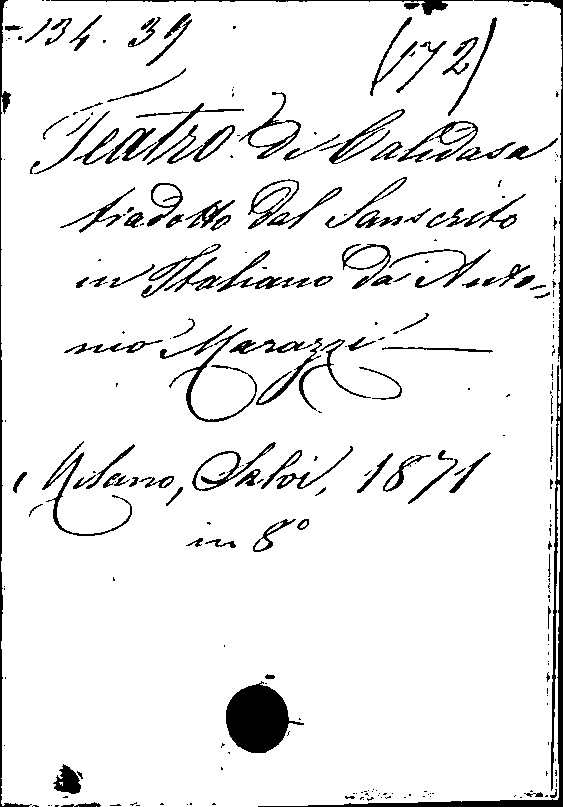 134. 39
(172)
Teatro di Calidasa
tradotto dal Sanscrito
in Italiano da Anto-
nio Marazzi
Milano, Salvi, 1871
in 8°